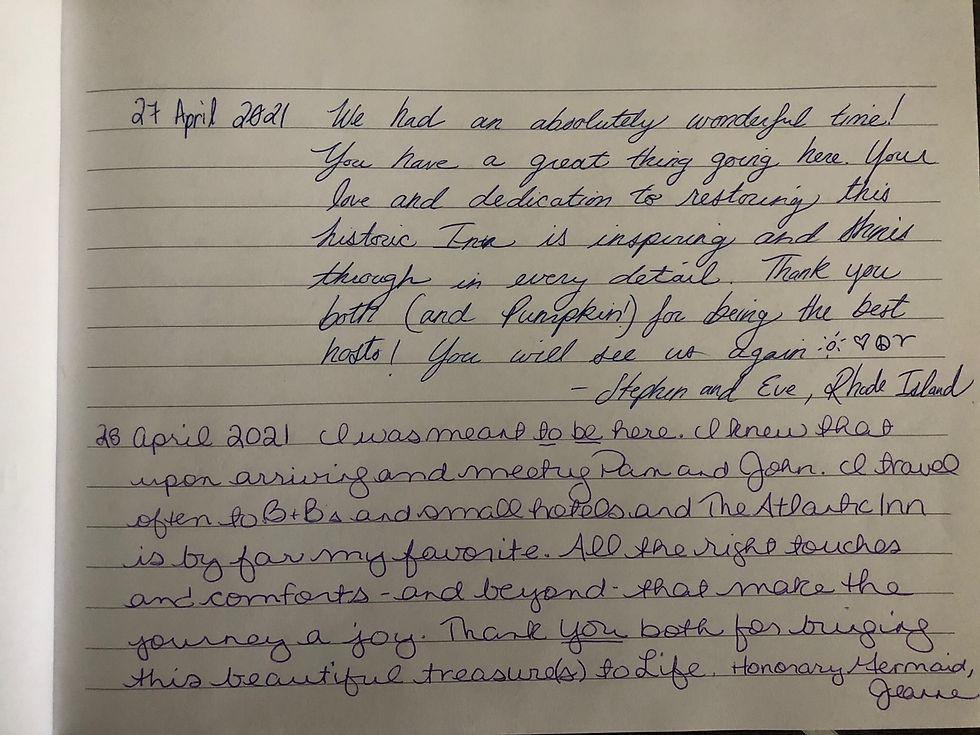 27 April 2021 We had an absolutely wonderful time!
You have a great thing going here. Your
love and dedication to restoring this
historic Inn is inspiring and shines
through in every detail. Thank you
both (and Pumpkin!) for being the best
hosts! You will see us again
- Stephen and Eve, Rhode Island
28 April 2021 I was meant to be here. I knew that
upon arriving and meeting Pam and John. I travel
often to B+B's and small hotels and The Atlantic Inn
is by far my favorite. All the right touches
and comforts - and beyond - that make the
journey a joy. Thank you both for bringing
this beautiful treasure(s) to Life. Honorary Mermaid,
Jeanne